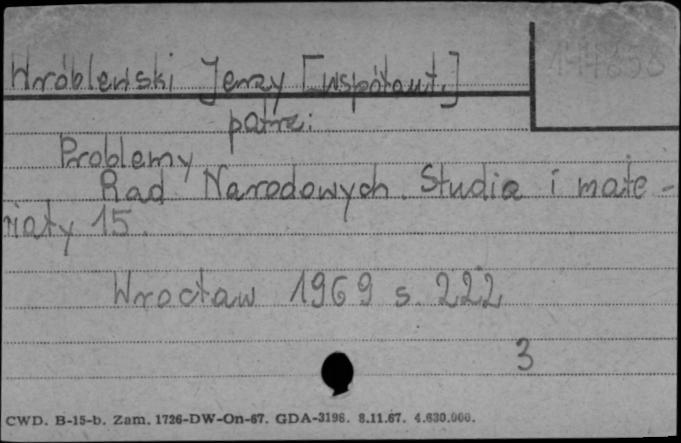 Wróblewski Jerzy [współaut.]
patrz:
Problemy
Rad Narodowych. Studia i mate-
riały 15.
Wrocław 1969 s. 222
3
CWD. B-15-b. Zam. 1726-DW-On-67. GDA-3196. 8.11.67. 4.630.000.